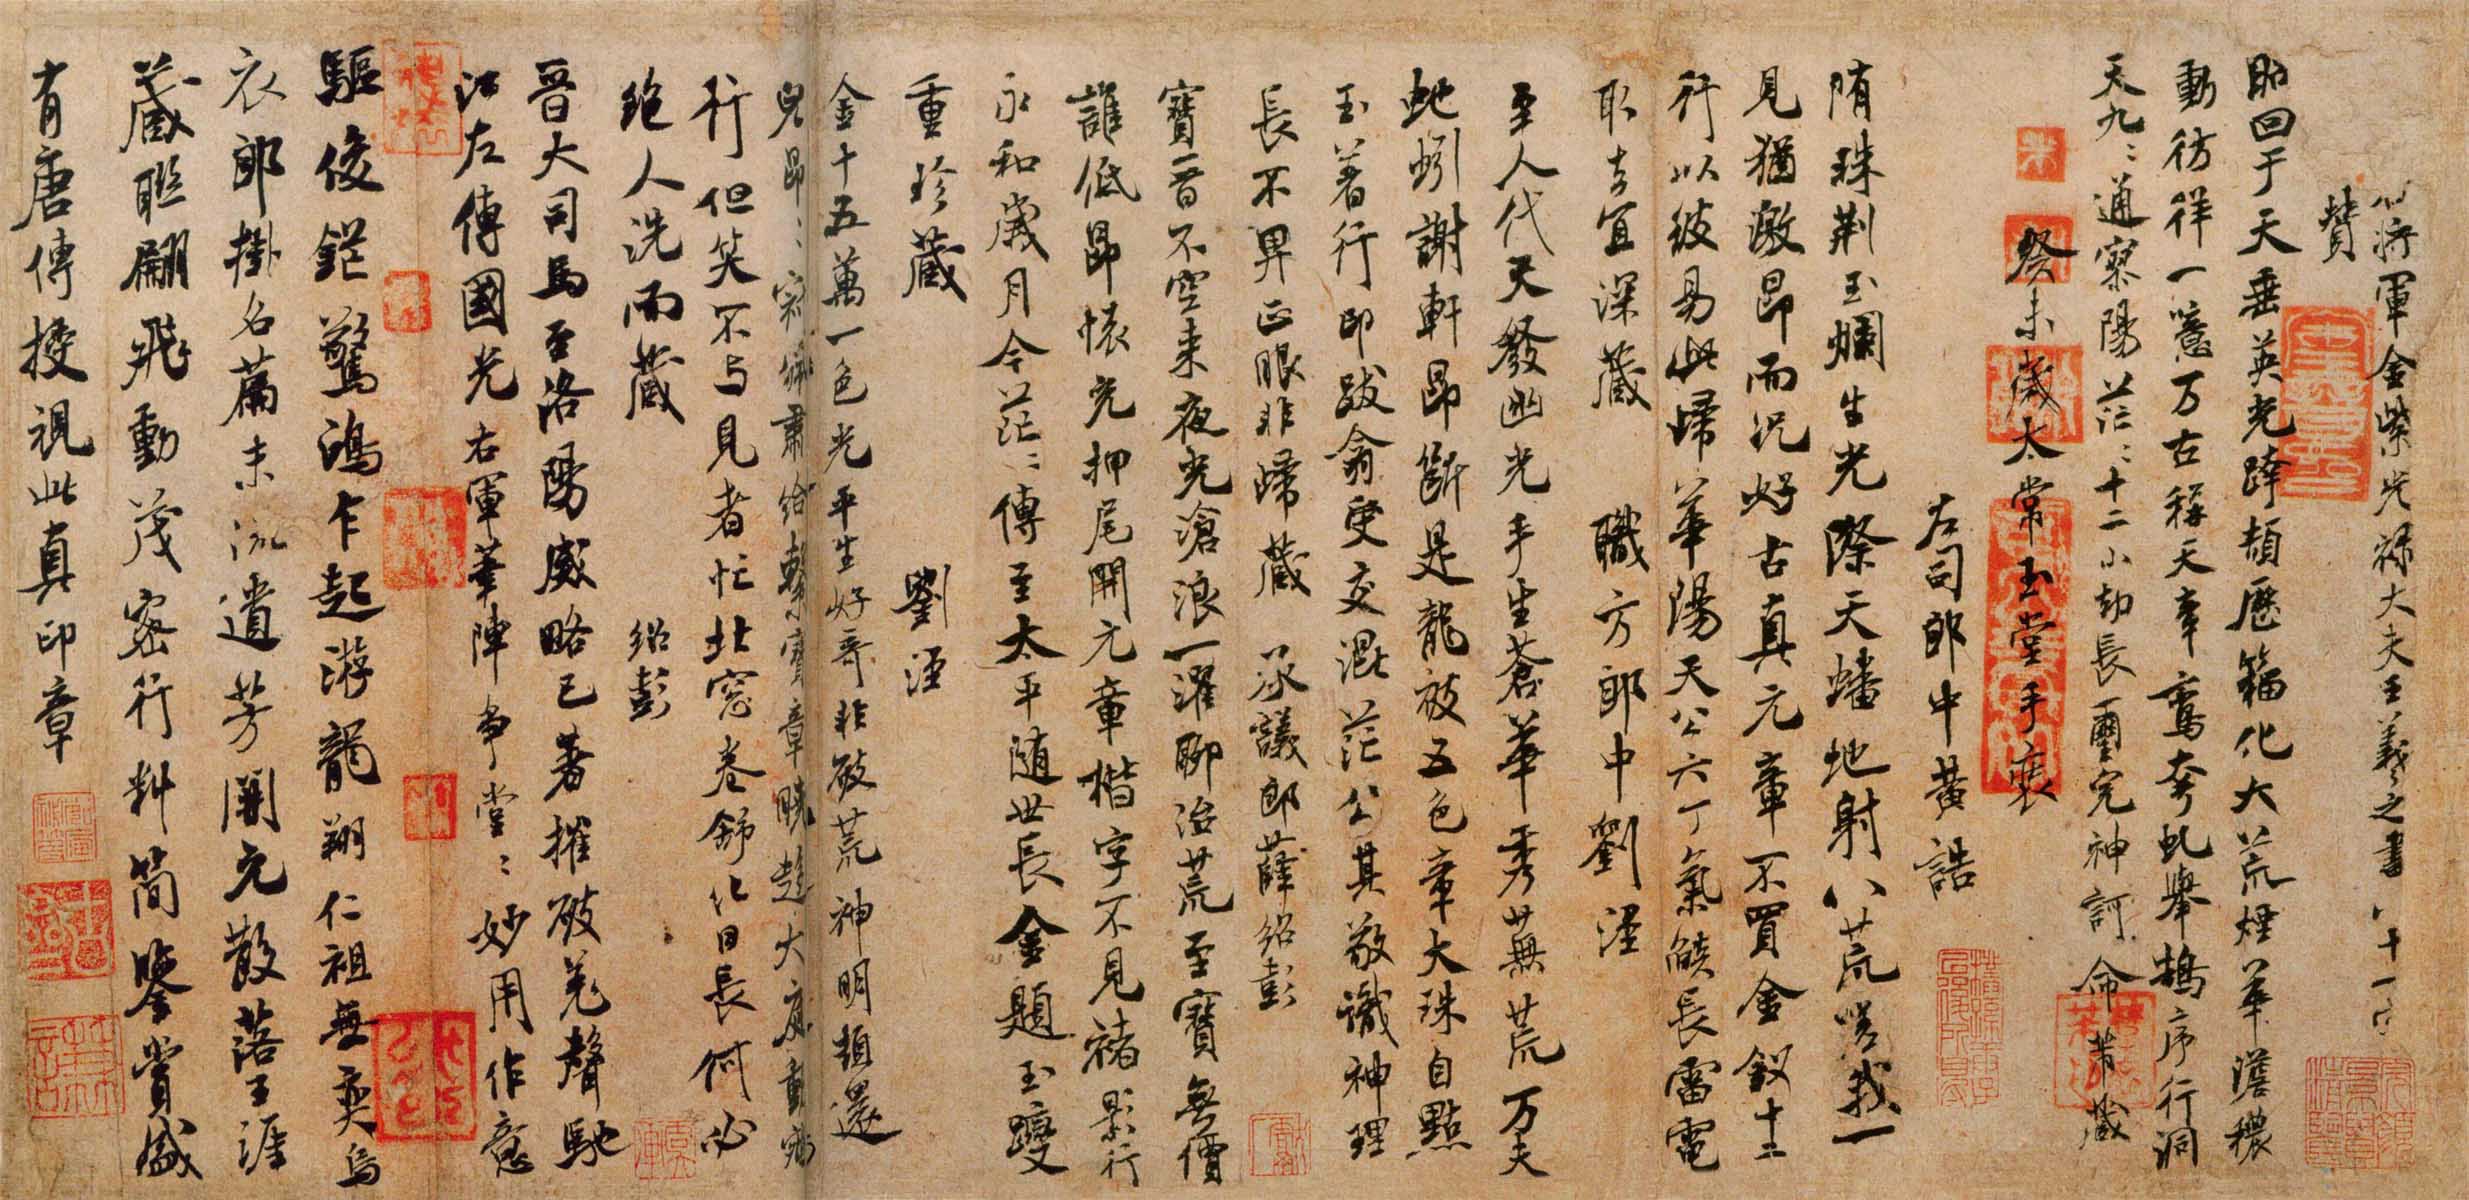 右將軍金紫光祿大夫王羲之書八十一字
贊
昭回于天垂英光跨頡歷籀化大荒煙華澹穠
動彷徉一噫万古稱天章鸞夸虬舉鵠序行洞
天九〻通寥陽茫〻十二小劫長璽完神訶命芾藏
癸未歲太常玉堂手裝
左司郎中黃誥
隋珠荆玉爛生光際天蟠地射八荒嗟我一
見猶激昂而况好古真元章不買金釵十二
行以彼易此歸華陽天公六丁氣燄長雷電
取去宜深藏 職方郎中劉涇
至人代天發幽光手生蒼華秀蕪荒万夫
虵蚓謝軒昂斷是龍祓五色章大珠自點
玉著行印跋翕受交混茫公其敬識神理
長不畀正眼非歸藏 承議郎薛紹彭
寶晋不空来夜光滄浪一濯聊洽荒至寶無價
誰低昂懷充押尾開元章楷字不見褚影行
永和歲月今茫〻傳至太平隨世長金題玉躞
重珍藏 劉涇
金十五萬一色光平生好奇非破荒神明頓還
兒昂〻 章 趨大庭
行但笑不与見者忙北窓卷舒化日長何必
绝人洗而藏 紹彭
晋大司馬至洛陽威略已著摧破羌聲馳
江左傳國光右軍筆陣爭堂〻妙用作意
驅俊鋩驚鴻乍起游龍翔仁祖無奕烏
衣郎掛名篇末流遺芳開元散落王涯
藏聯翩飛動茂密行料简鑒賞盛
有唐傳授視此真印章